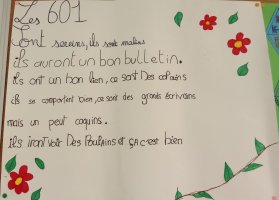 Les 601
Sont sereins, ils sont malins
ils auront un bon bulletin.
ils ont un bon lien, ce sont Des copains
ils se comportent bien, ce sont des grands écrivains
mais un peut coquins.
Ils iront voir Des Poulains et ça c'est bien